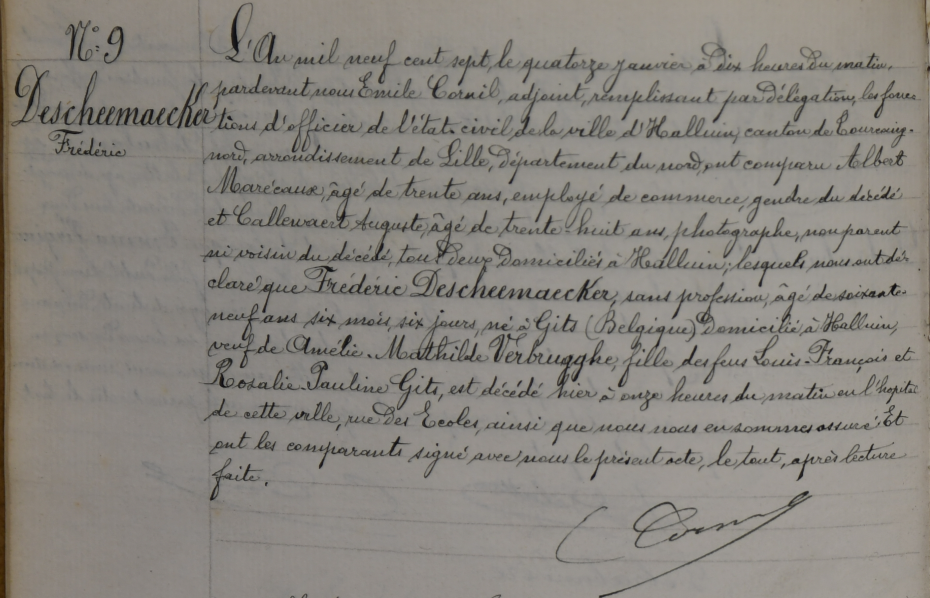 N° 9
Descheemaecker
Frédéric
L'An mil neuf cent sept, le quatorze janvier à dix heures du matin,
pardevant nous Emile Cornil, adjoint, remplissant par délégation, les fonc-
tions d'officier de l'état-civil de la ville d'Halluin, canton de Tourcoing-
nord, arrondissement de Lille, département du nord, ont comparu Albert
Marécaux, âgé de trente ans, employé de commerce, gendre du décédé
et Callewaert Auguste, âgé de trente-huit ans, photographe, non parent
ni voisin du décédé, tous deux domiciliés à Halluin; lesquels nous ont dé-
claré que Frédéric Descheemaecker, sans profession, âgé de soixante-
neuf ans six mois, six jours, né à Gits (Belgique) domicilié à Halluin,
veuf de Amélie-Mathilde Verbrugghe, fille des feus Louis-François et
Rosalie-Pauline Gits, est décédé hier à onze heures du matin en l'hopital
de cette ville, rue des Ecoles, ainsi que nous nous en sommes assuré. Et
ont les comparants signé avec nous le présent acte, le tout, après lecture
faite.